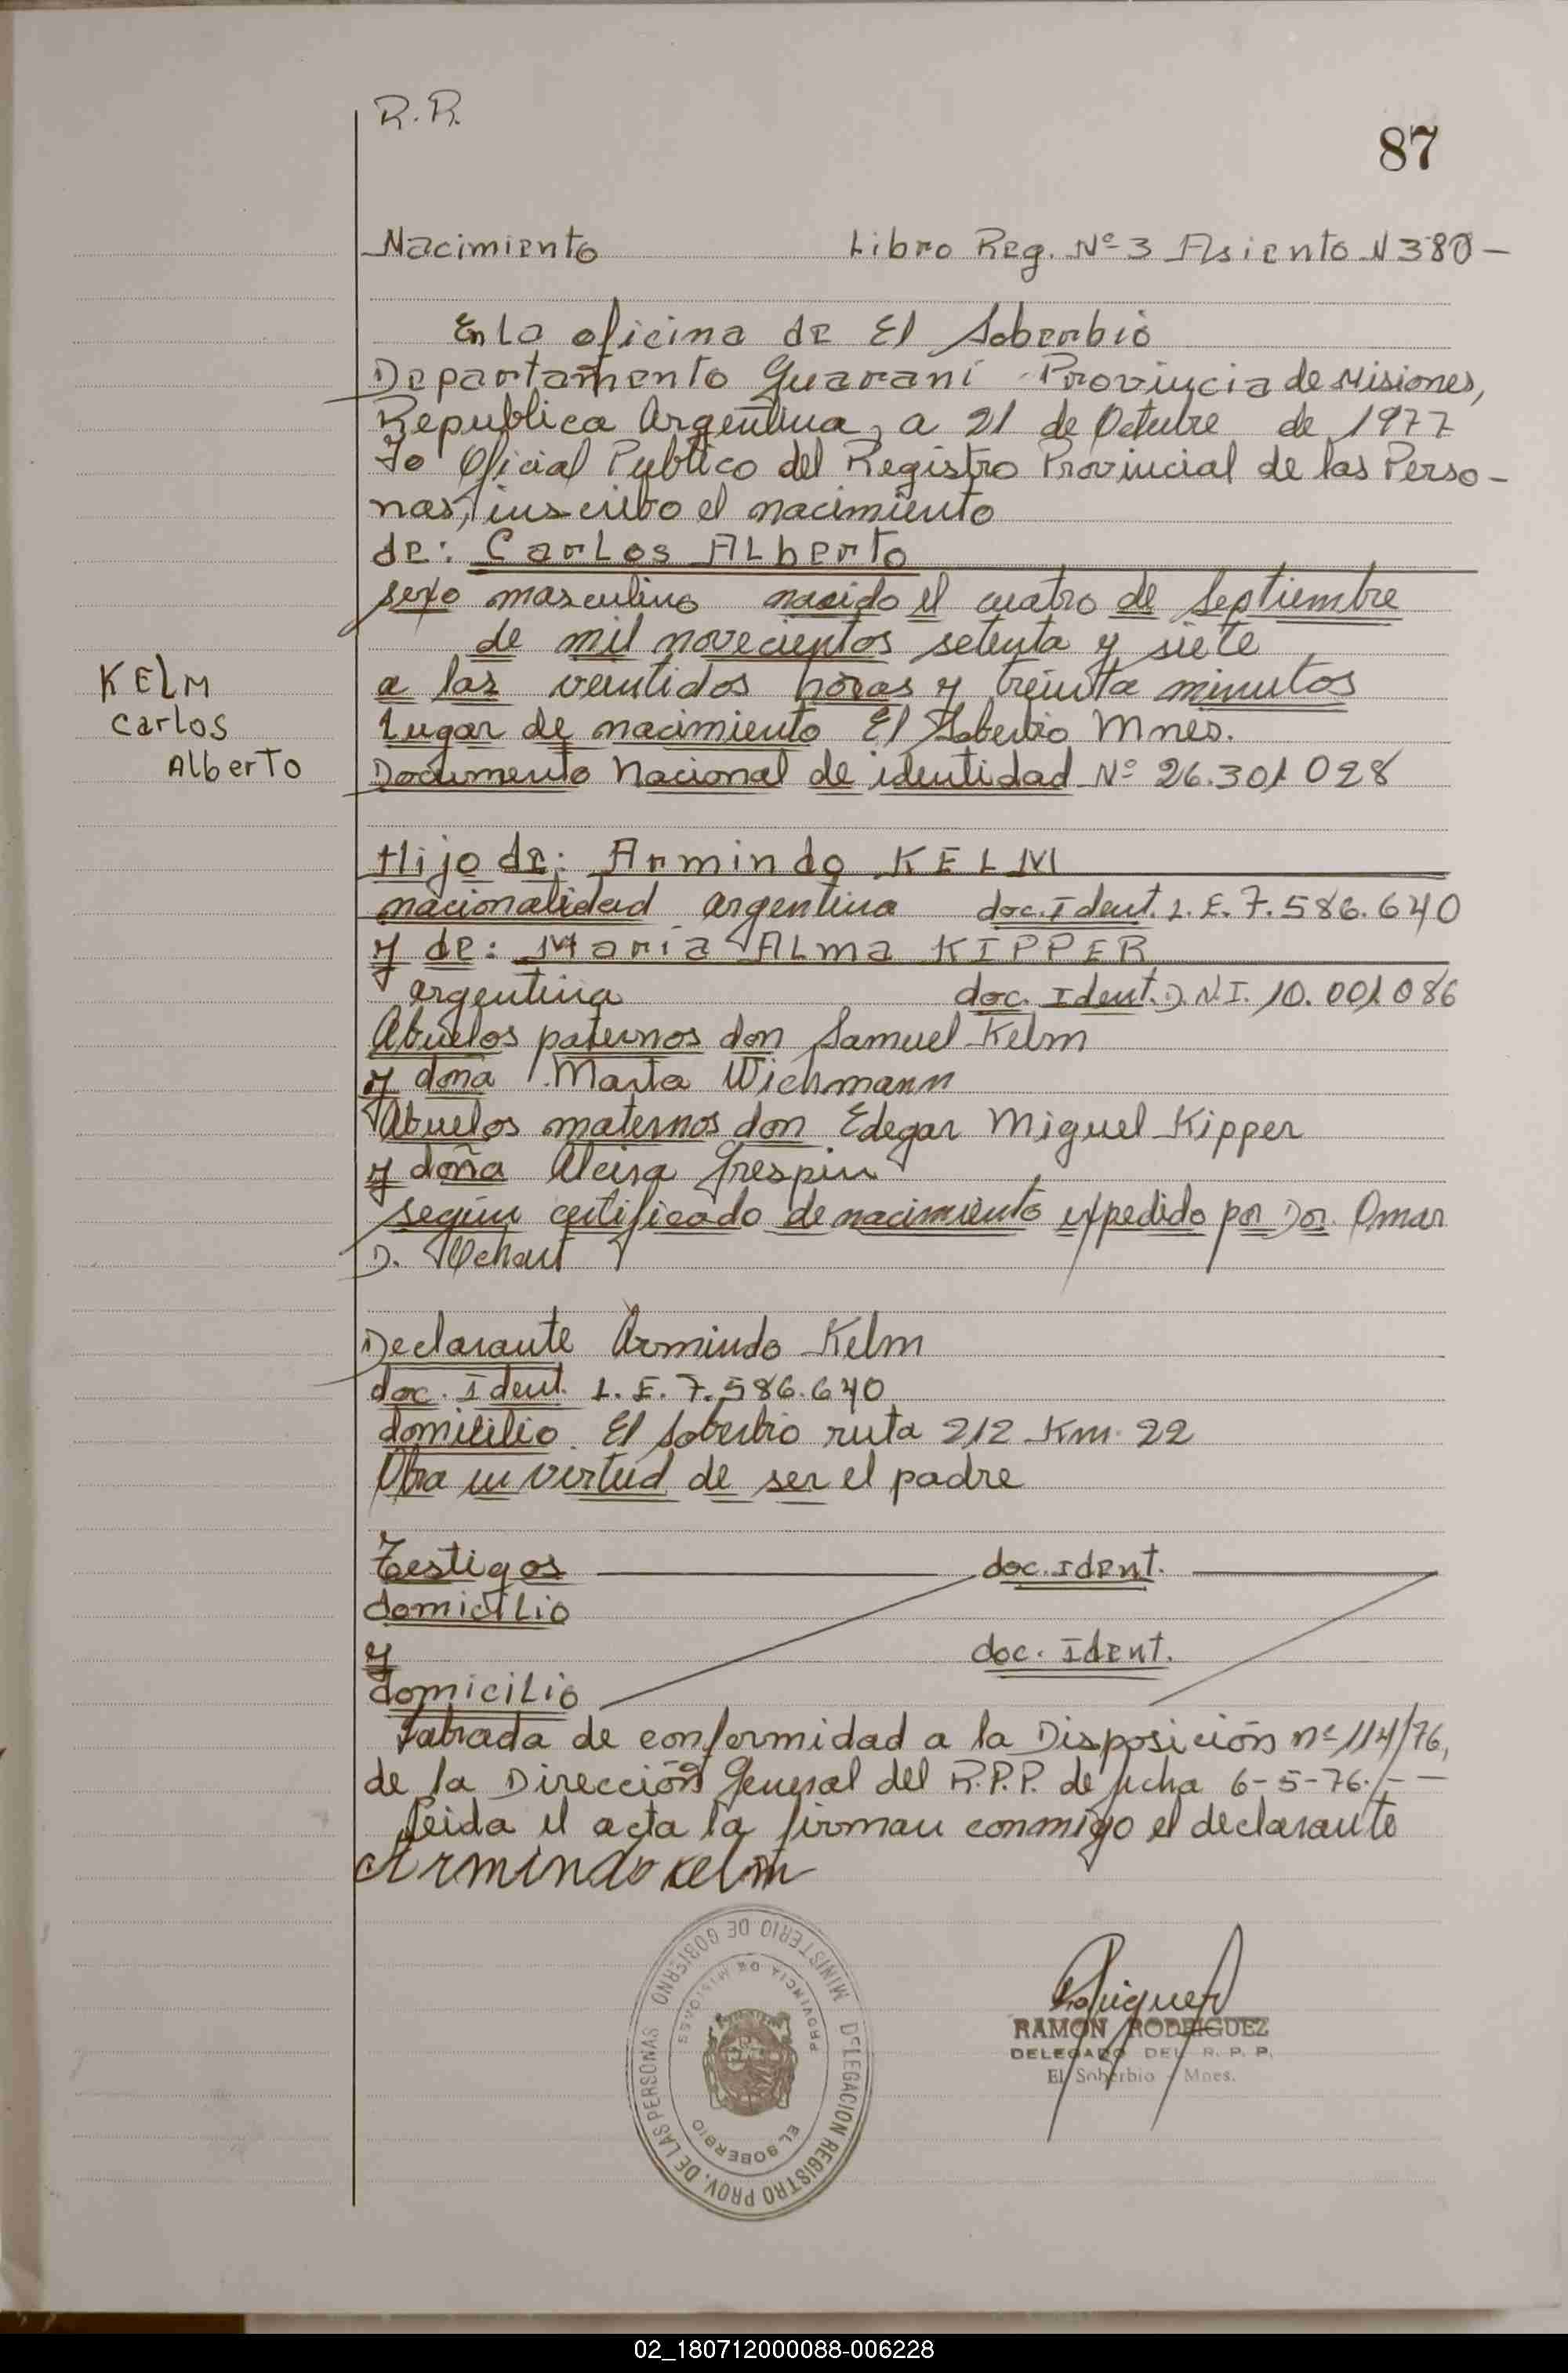 R.R.
87
Nacimiento Libro Reg. Nº 3 Asiento N 380-
En La oficina de El Soberbio
Departamento Guarani Provincia de Misiones,
Republica Argentina, a 21 de Octubre de 1977
Yo Oficial Publico del Registro Provincial de las Perso-
nas, inscribo el nacimiento
de: Carlos Alberto
sexo masculino nacido el cuatro de Septiembre
de mil novecientos setenta y siete
KELM
Carlos
Alberto
a las veintidos horas y treinta minutos
Lugar de nacimiento El Soberbio Mnes.
Documento Nacional de identidad Nº 26.301.028
Hijo de: Armindo KELM
nacionalidad argentina doc. Ident. L.E. 7.586.640
y de: Maria Alma KIPPER
argentina doc. Ident. D.N.I. 10.001.086
Abuelos paternos don Samuel Kelm
y doña Marta Wichmann
Abuelos maternos don Edegar Miguel Kipper
y doña Alcira Grespin
según certificado de nacimiento expedido por Dor. Omar
D.
Declarante Armindo Kelm
doc. Ident. L.E. 7.586.640
domicilio. El Soberbio ruta 212 Km. 22
Obra en virtud de ser el padre
Testigos doc. Ident.
domicilio
y doc. Ident.
domicilio
Labrada de conformidad a la Disposición nº 114/76,
de la Dirección General del R.P.P. de fecha 6-5-76./--
Leida el acta la firman conmigo el declarante
Armindo Kelm
MINISTERIO DE GOBIERNO
DELEGACION REGISTRO PROV. DE LAS PERSONAS
PROVINCIA DE MISIONES
EL SOBERBIO
RAMON RODRIGUEZ
DELEGADO DEL R. P. P.
El Soberbio - Mnes.
02_180712000088-006228